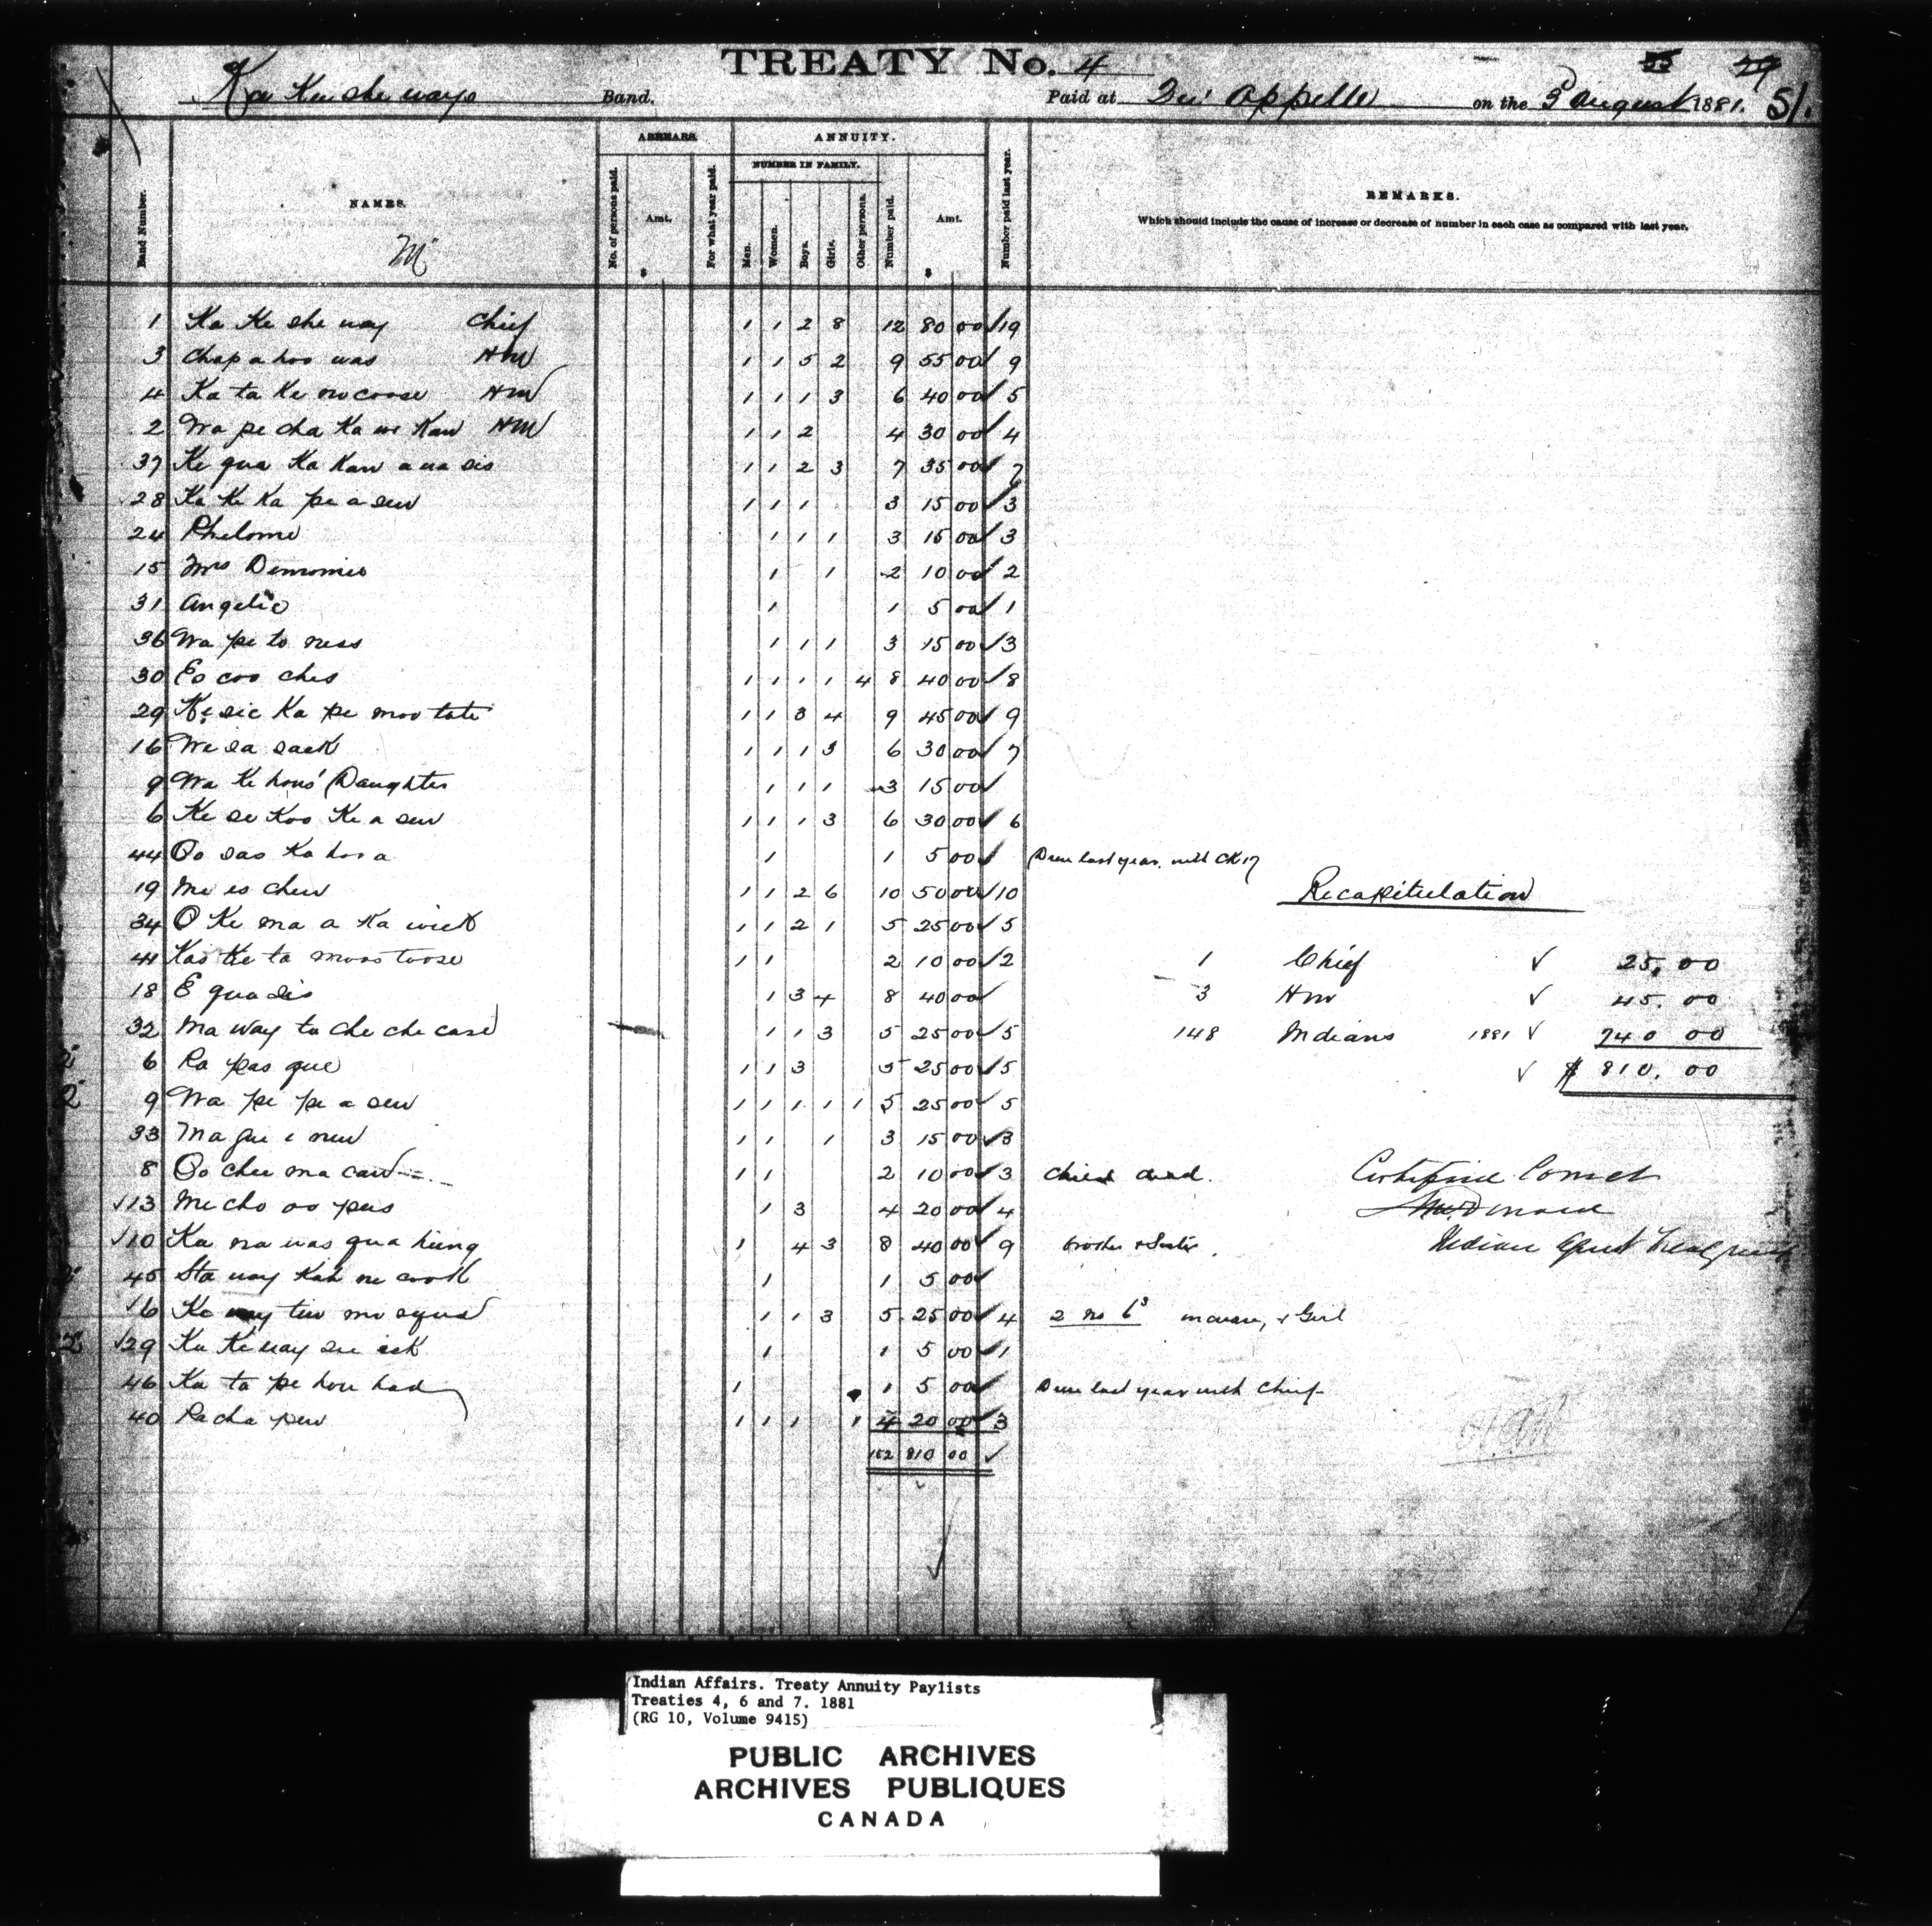 TREATY No. 4
55 49
Ka Kee she ways Band. Paid at Qu' Appelle on the 3 August 1881. 51.
Band Number. NAMES. ARREARS. No. of persons paid. Amt. $ For what year paid. ANNUITY. NUMBER IN FAMILY. Men. Women. Boys. Girls. Other persons. Number paid. Amt. $ Number paid last year. REMARKS.
Which should include the cause of increase or decrease of number in each case as compared with last year.
1 Ka Ke she way Chief 1 1 2 8 12 80 00 ✓ 19
3 Chap a hoo was HM 1 1 5 2 9 55 00 ✓ 9
4 Ka ta Ke no coose HM 1 1 1 3 6 40 00 ✓ 5
2 Wa pe cha Ka we Kaw HM 1 1 2 4 30 00 ✓ 4
37 Ke qua Ka Kaw a na sis 1 1 2 3 7 35 00 ✓ 7
28 Ka Ke Ka pe a sew 1 1 1 3 15 00 ✓ 3
24 Philome 1 1 1 3 15 00 ✓ 3
15 Mrs Demomie 1 1 2 10 00 ✓ 2
31 Angelic 1 1 5 00 ✓ 1
36 Wa pe to ness 1 1 1 3 15 00 ✓ 3
30 Eo coo ches 1 1 1 1 4 8 40 00 ✓ 8
29 Ke sic Ka pe moo tate 1 1 3 4 9 45 00 ✓ 9
16 We sa sack 1 1 1 3 6 30 00 ✓ 7
9 Wa Ke hons' Daughter 1 1 1 3 15 00 ✓
6 Ke se Koo Ke a sew 1 1 1 3 6 30 00 ✓ 6
44 Oo sao Ka hoo a 1 1 5 00 ✓ Drew last year with CK 17
19 Me es chew 1 1 2 6 10 50 00 ✓ 10
Recapitulation
34 O Ke ma a Ka wick 1 1 2 1 5 25 00 ✓ 5
41 Kas Ke ta moos toose 1 1 2 10 00 ✓ 2 1 Chief ✓ 25.00
18 E qua sis 1 3 4 8 40 00 3 HM ✓ 45.00
32 Ma way tu che che case 1 1 3 5 25 00 ✓ 5 148 Indians 1881 ✓ 740 00
2 6 Pa pas que 1 1 3 5 25 00 ✓ 5 ✓ $ 810.00
2 9 Wa pe pe a sew 1 1 1 1 1 5 25 00 ✓ 5
33 Ma que e new 1 1 1 3 15 00 ✓ 3
8 Oo chee ma caw 1 1 2 10 00 ✓ 3 Child dead. Certified Correct
✓13 Me cho oo pees 1 3 4 20 00 ✓ 4
✓10 Ka na was qua hung 1 4 3 8 40 00 ✓ 9 brother & Sister. Indian Agent
45 Sta way Kah ne cook 1 1 5 00 ✓
✓6 Ka way tew mo squa 1 1 3 5 25 00 ✓ 4 2 no 6 increase, 1 Girl
2 ✓29 Ka Ke way see ask 1 1 5 00 ✓ 1
46 Ka ta pe hou had 1 1 5 00 ✓ Drew last year with Chief
40 Pa cha pew 1 1 1 1 4 20 00 ✓ 3
152 810 00 ✓
Indian Affairs. Treaty Annuity Paylists
Treaties 4, 6 and 7. 1881
(RG 10, Volume 9415)
PUBLIC ARCHIVES
ARCHIVES PUBLIQUES
CANADA